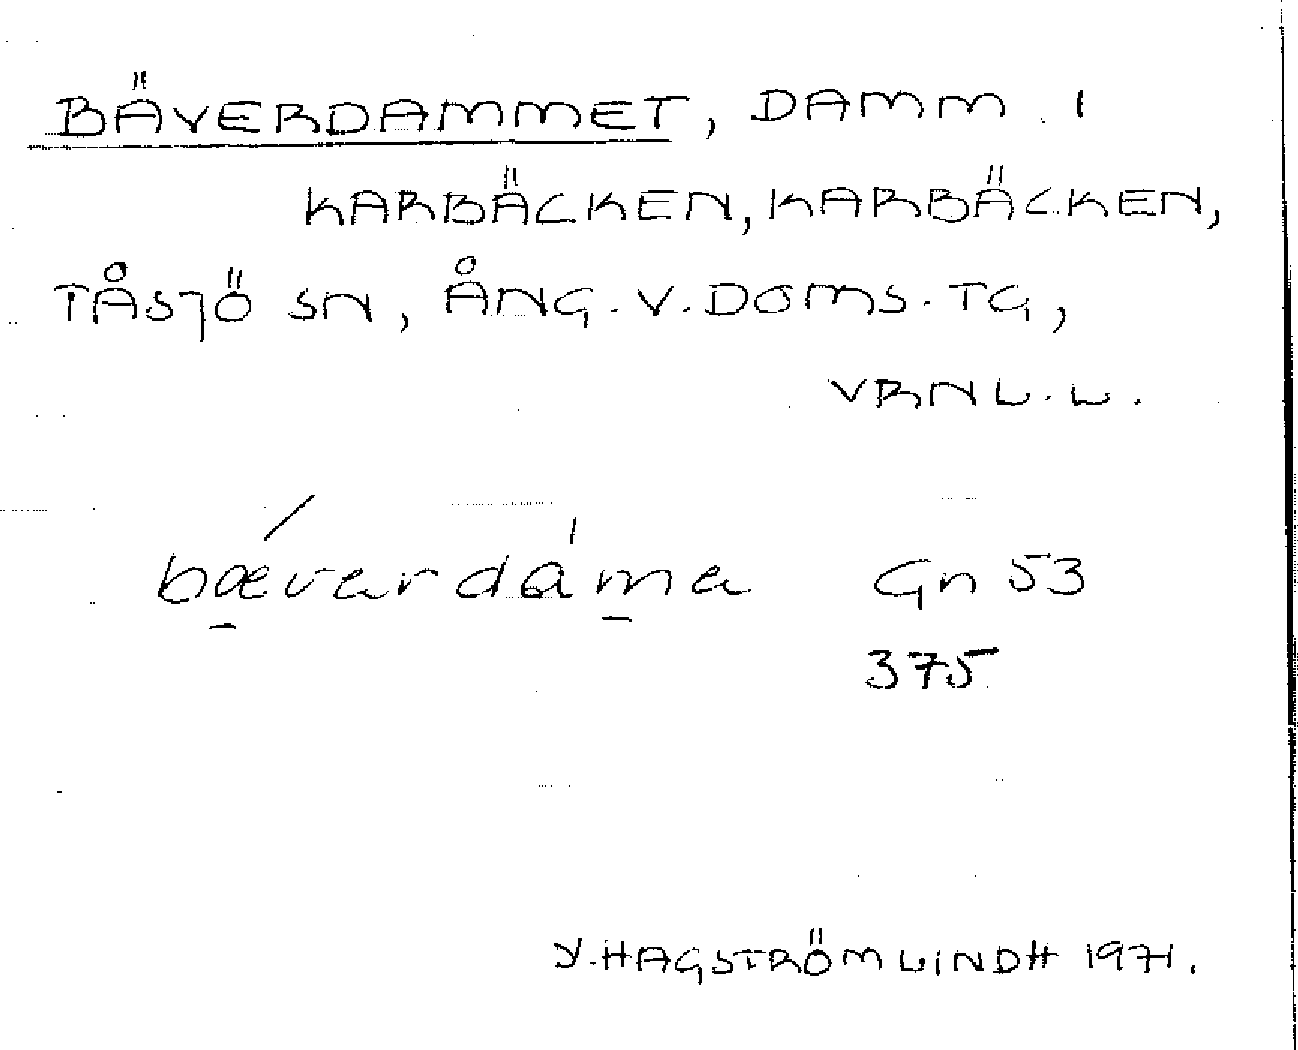 BÄVERDAMMET, DAMM I
KARBÄCKEN, KARBÄCKEN,
TÅSJÖ SN, ÅNG. V. DOMS. TG,
VRNL. L.
bæverdáma Gn 53
375
Y. HAGSTRÖM LINDH 1971.